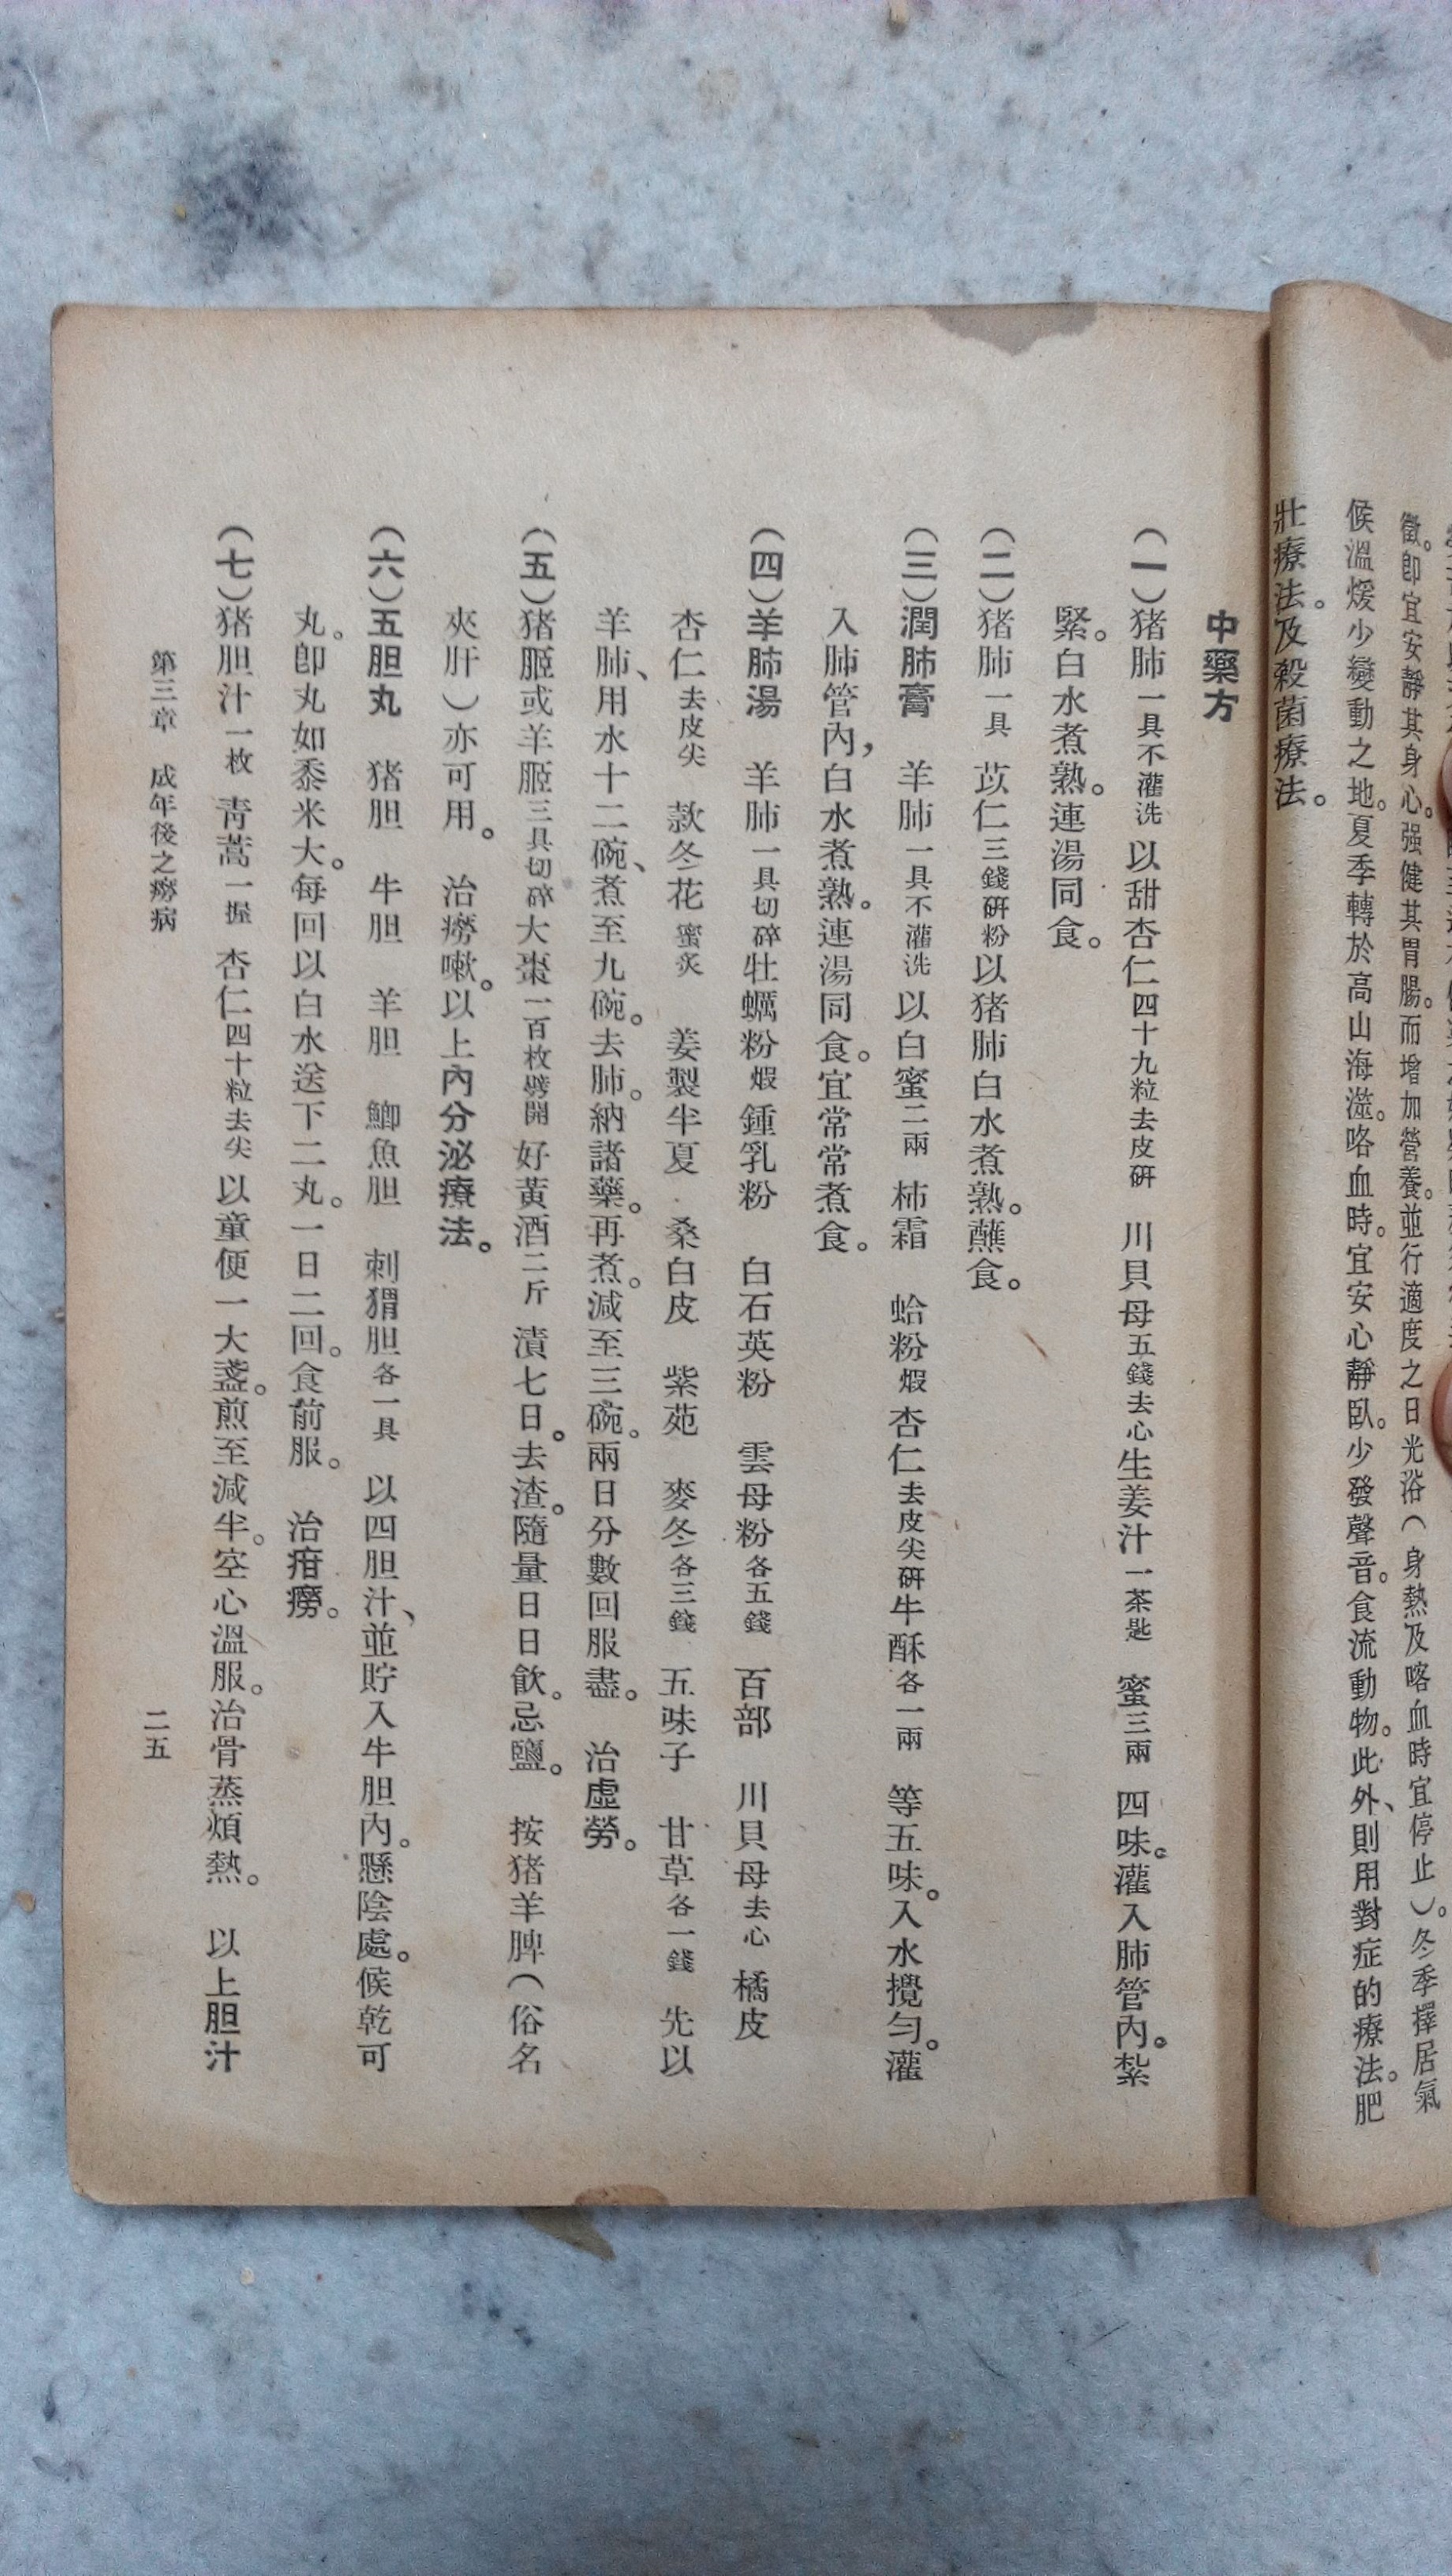 徵。卽宜安靜其身心。强健其胃腸。而增加營養。並行適度之日光浴（身熱及喀血時宜停止）。冬季擇居氣
候溫煖少變動之地。夏季轉於高山海滋。咯血時。宜安心靜臥。少發聲音。食流動物。此外、則用對症的療法。肥
壯療法。及殺菌療法。
中藥方
（一）猪肺一具不灌洗以甜杏仁四十九粒去皮研 川貝母五錢去心生姜汁一茶匙 蜜三兩 四味。灌入肺管內。紮
緊。白水煮熟。連湯同食。
（二）猪肺一具 苡仁三錢研粉以猪肺白水煮熟。蘸食。
（三）潤肺膏 羊肺一具不灌洗 以白蜜二兩 柿霜 蛤粉煆 杏仁去皮尖研牛酥各一兩 等五味。入水攪勻。灌
入肺管內，白水煮熟。連湯同食。宜常常煮食。
（四）羊肺湯 羊肺一具切碎牡蠣粉煆 鍾乳粉 白石英粉 雲母粉各五錢 百部 川貝母去心 橘皮
杏仁去皮尖 款冬花蜜炙 姜製半夏 桑白皮 紫菀 麥冬各三錢 五味子 甘草各一錢 先以
羊肺、用水十二碗、煮至九碗。去肺。納諸藥。再煮。減至三碗。兩日分數回服盡。 治虛勞。
（五）猪胵或羊胵三具切碎大棗一百枚劈開 好黃酒二斤 漬七日。去渣。隨量日日飮。忌鹽。 按猪羊脾（俗名
夾肝）亦可用。 治癆嗽。以上內分泌療法。
（六）五胆丸 猪胆 牛胆 羊胆 鯽魚胆 刺猬胆各一具 以四胆汁、並貯入牛胆內。懸陰處。候乾可
丸。卽丸如黍米大。每回以白水送下二丸。一日二回。食前服。 治疳癆。
（七）猪胆汁一枚 靑蒿一握 杏仁四十粒去尖 以童便一大盞。煎至減半。空心溫服。治骨蒸煩熱。 以上胆汁
第三章 成年後之癆病 二五